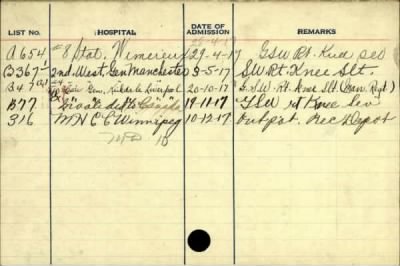 LIST NO. HOSPITAL DATE OF ADMISSION REMARKS
A654 #8 Stat. Wimereux 29-4-17 GSW Rt. Knee sev
B367 2nd West. Gen Manchester 3-5-17 SW Rt. Knee Slt.
B47 Gen. Liverpool 20-10-17 G.S.W. Rt. Knee Slt. (Man. Rgt)
B77 19-11-17 GSW rt Knee Sev
316 M H C C Winnipeg 10-12-17 Outpat. Rec Depot